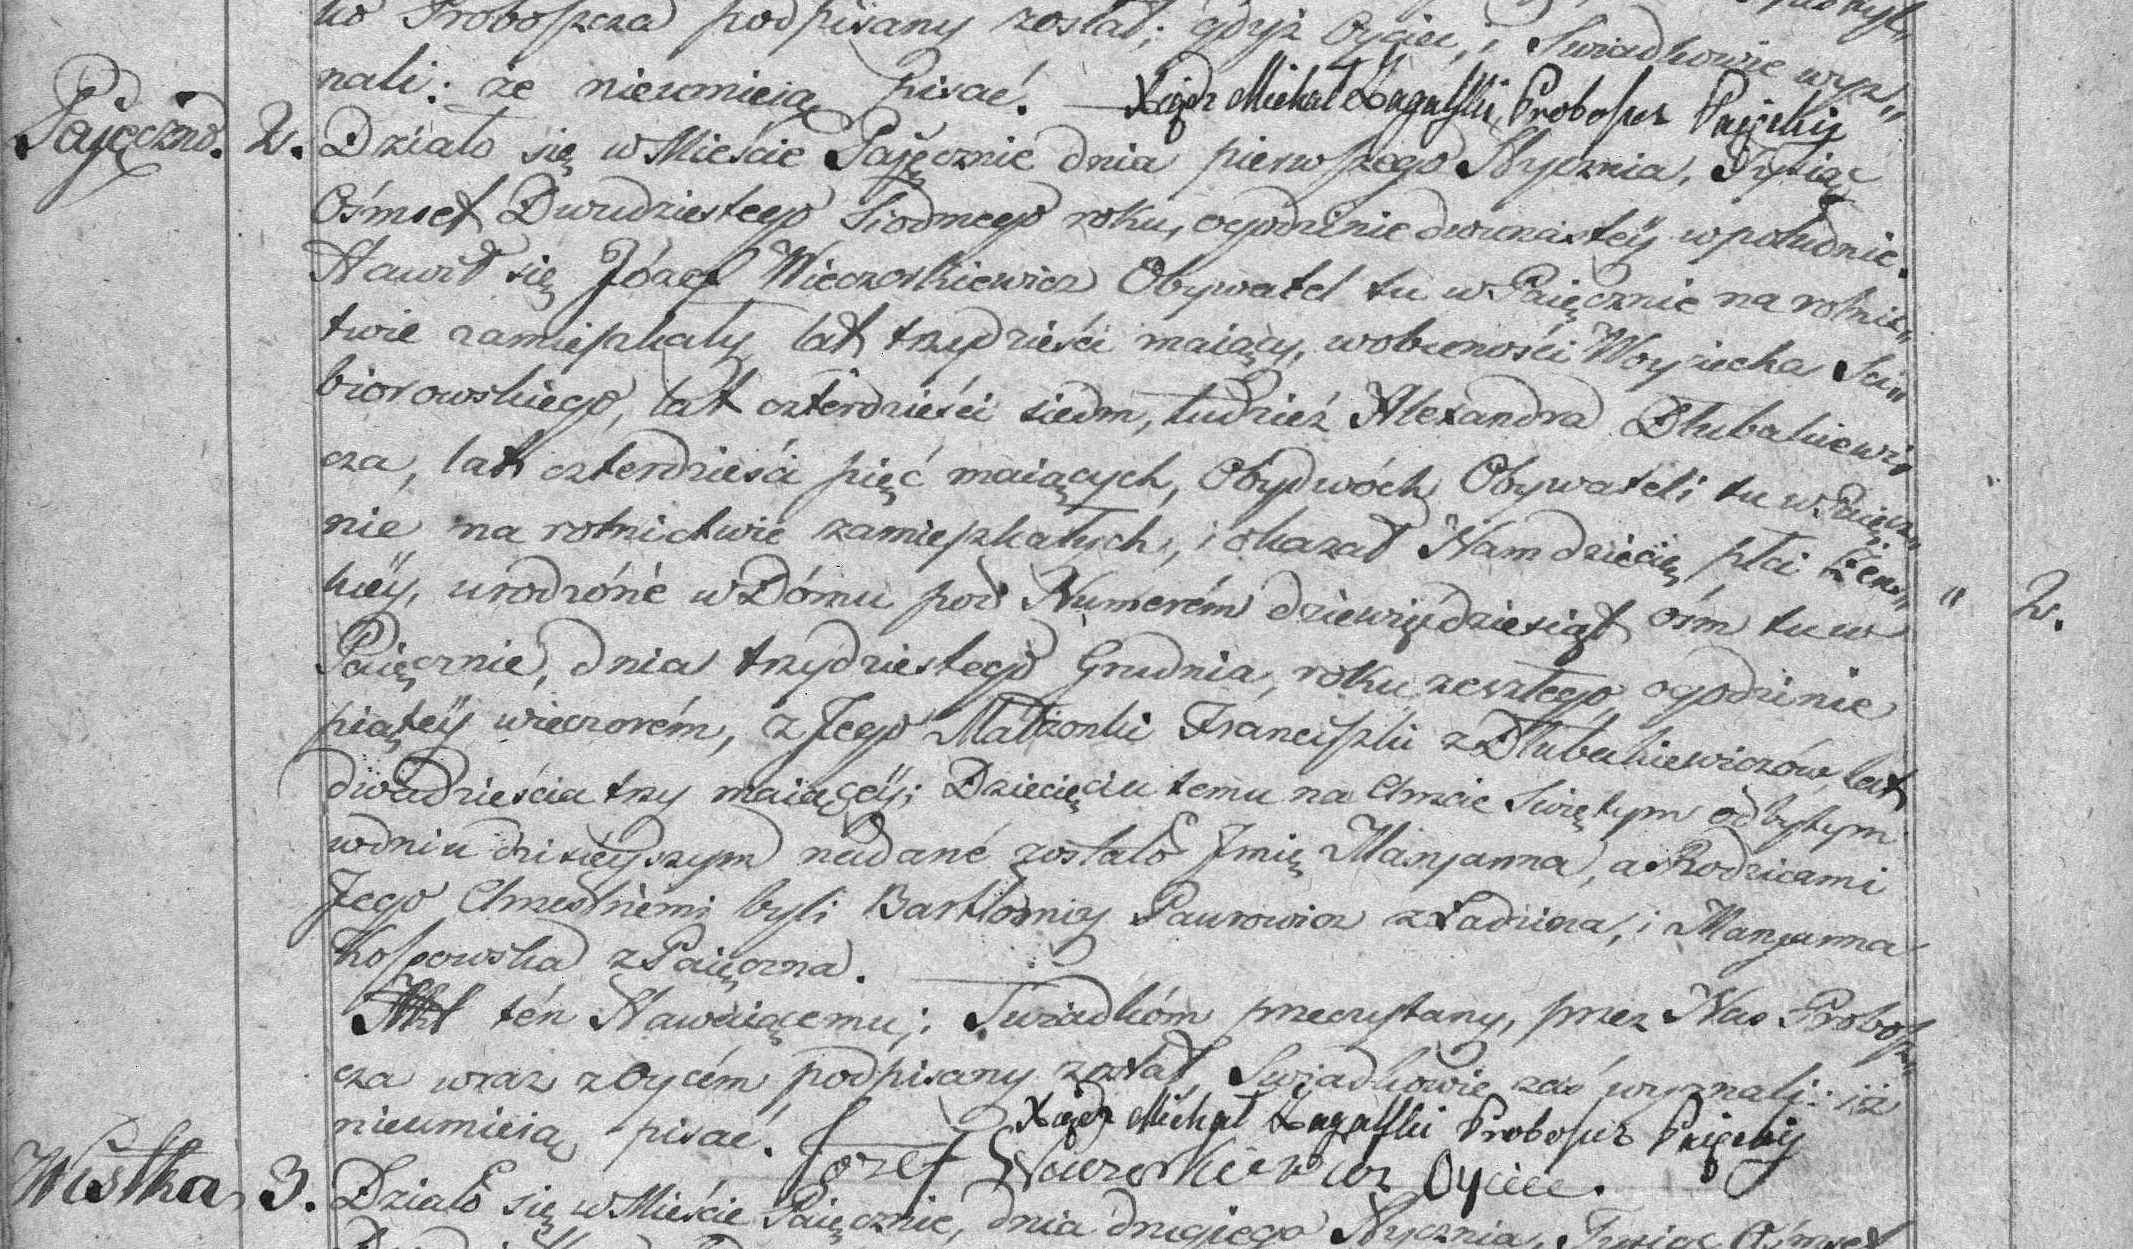 ko Proboszcza podpisany został; gdyż Oyciec, i Swiadkowie wyz„
nali: że nieumieią pisać. Xiądz Michał Zagalski Proboszcz Paięcki
Pajęczno. 2. Działo się w Mieście Pajęcznie dnia pierwszego Stycznia, Tysiąc
Ośmset Dwudziestego Siodmego roku, ogodzinie dwunastéy wpołudnie.
Stawił się Józef Wieczorkiewicz Obywatel tu w Paięcznie na rolnic„
twie zamieszkały, lat trzydzieści maiący, wobecności Woyciecha Sci„
biorowskiego, lat czterdzieści siedm, tudzież Alexandra Dłubakiewi„
cza, lat czterdzieści pięć maiących, Obydwóch Obywateli tu w Paięcz„
nie na rolnictwie zamieszkałych, i okazał Nam dziecię płci Żeńs„
kiéy, urodzóné w Dómu pod Numerém dziewięćdziesiąt óśm tu w " 2.
Paięcznie, dnia trzydziestego Grudnia, roku zeszłego ogodzinie
piątéy wieczorém, z Jego Małżonki Franciszki z Dłubakiewiczów, lat
dwadzieścia trzy maiącéy; Dziecięciu temu na Chrzcie Swiętym odbytym
wdniu dzisieyszym nadané zostało Jmię Maryanna, a Rodzicami
Jego Chrzestnémi byli Bartłomiy Paurowicz z Ładzina, i Maryanna
Kossowska z Paięczna.
Akt tén Stawaiącemu, i Swiadkóm przeczytany, przez Nas Probosz„
cza wraz z Oycém podpisany został, Swiadkowie zaś wyznali: iż
nieumieią pisać. Xiądz Michał Zagalski Proboszcz Paięcki
Jozef Wieczorkiewicz Oyciec.
Wistka 3. Działo się w Mieście Paięcznie, dnia drugiego Stycznia, Tysiąc Ośmset